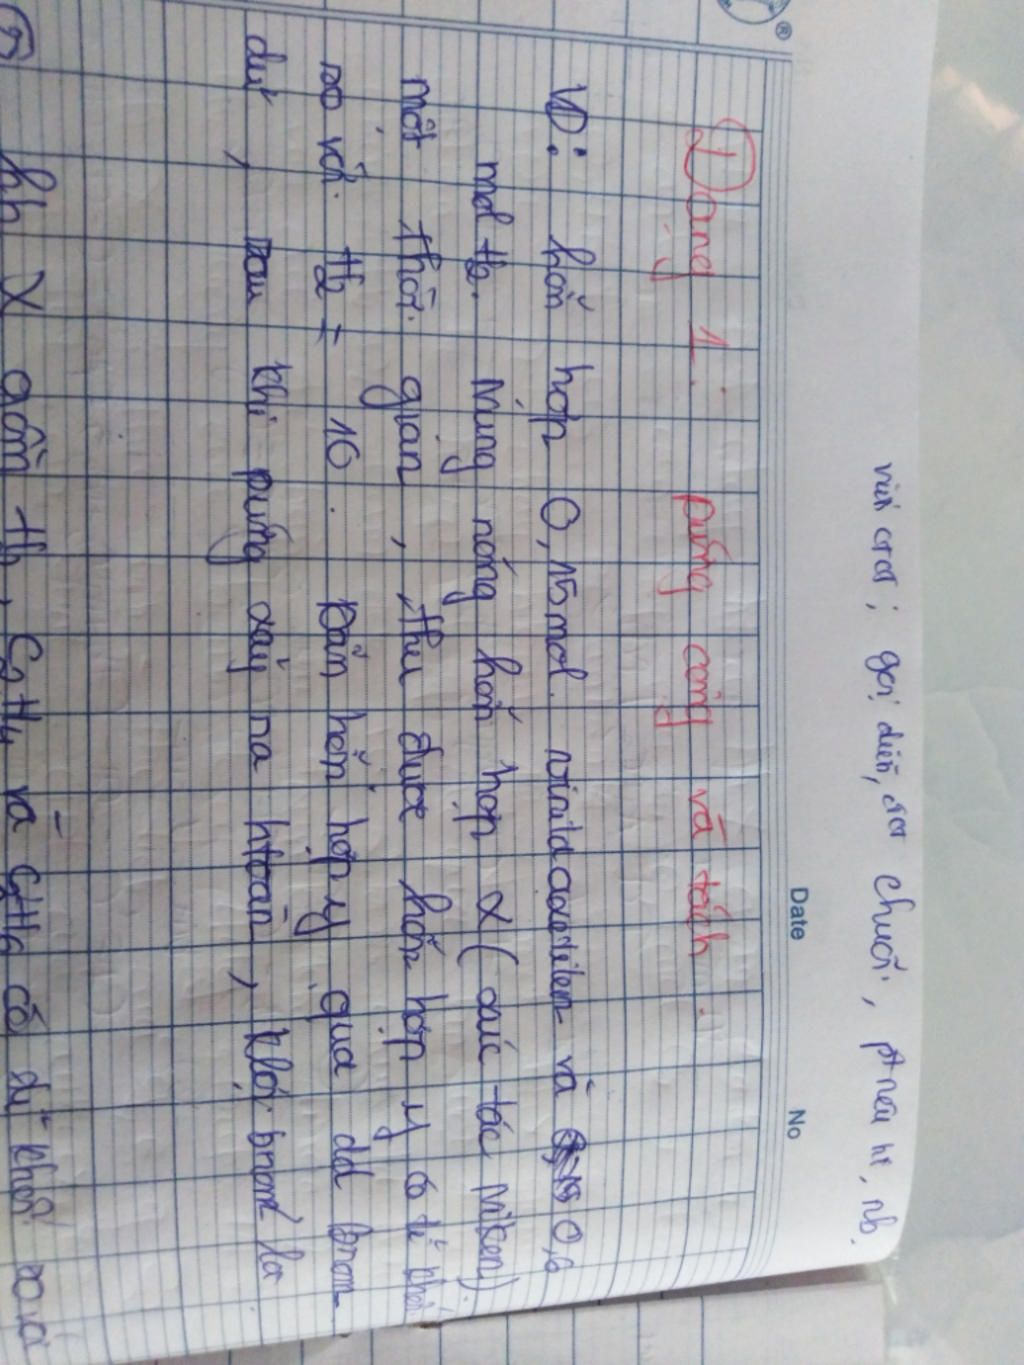 ®
Date
No
viết ctct ; gọi diễn, ctct chuỗi , pt nêu ht, nb.
Dạng 1 : pứng cộng và tách .
VD: hỗn hợp 0,15 mol vinilaxetilen và 0,6
mol H2. Nung nóng hỗn hợp X ( xúc tác Niken)
một thời gian , thu được hỗn hợp y có tỉ khối
so với H2 = 10 . Dẫn hỗn hợp y qua dd brom
dư , sau khi pứng xảy ra htoàn , klới brom la
hh X gồm H2, C2H4 và C3H6 có tỉ khối so với